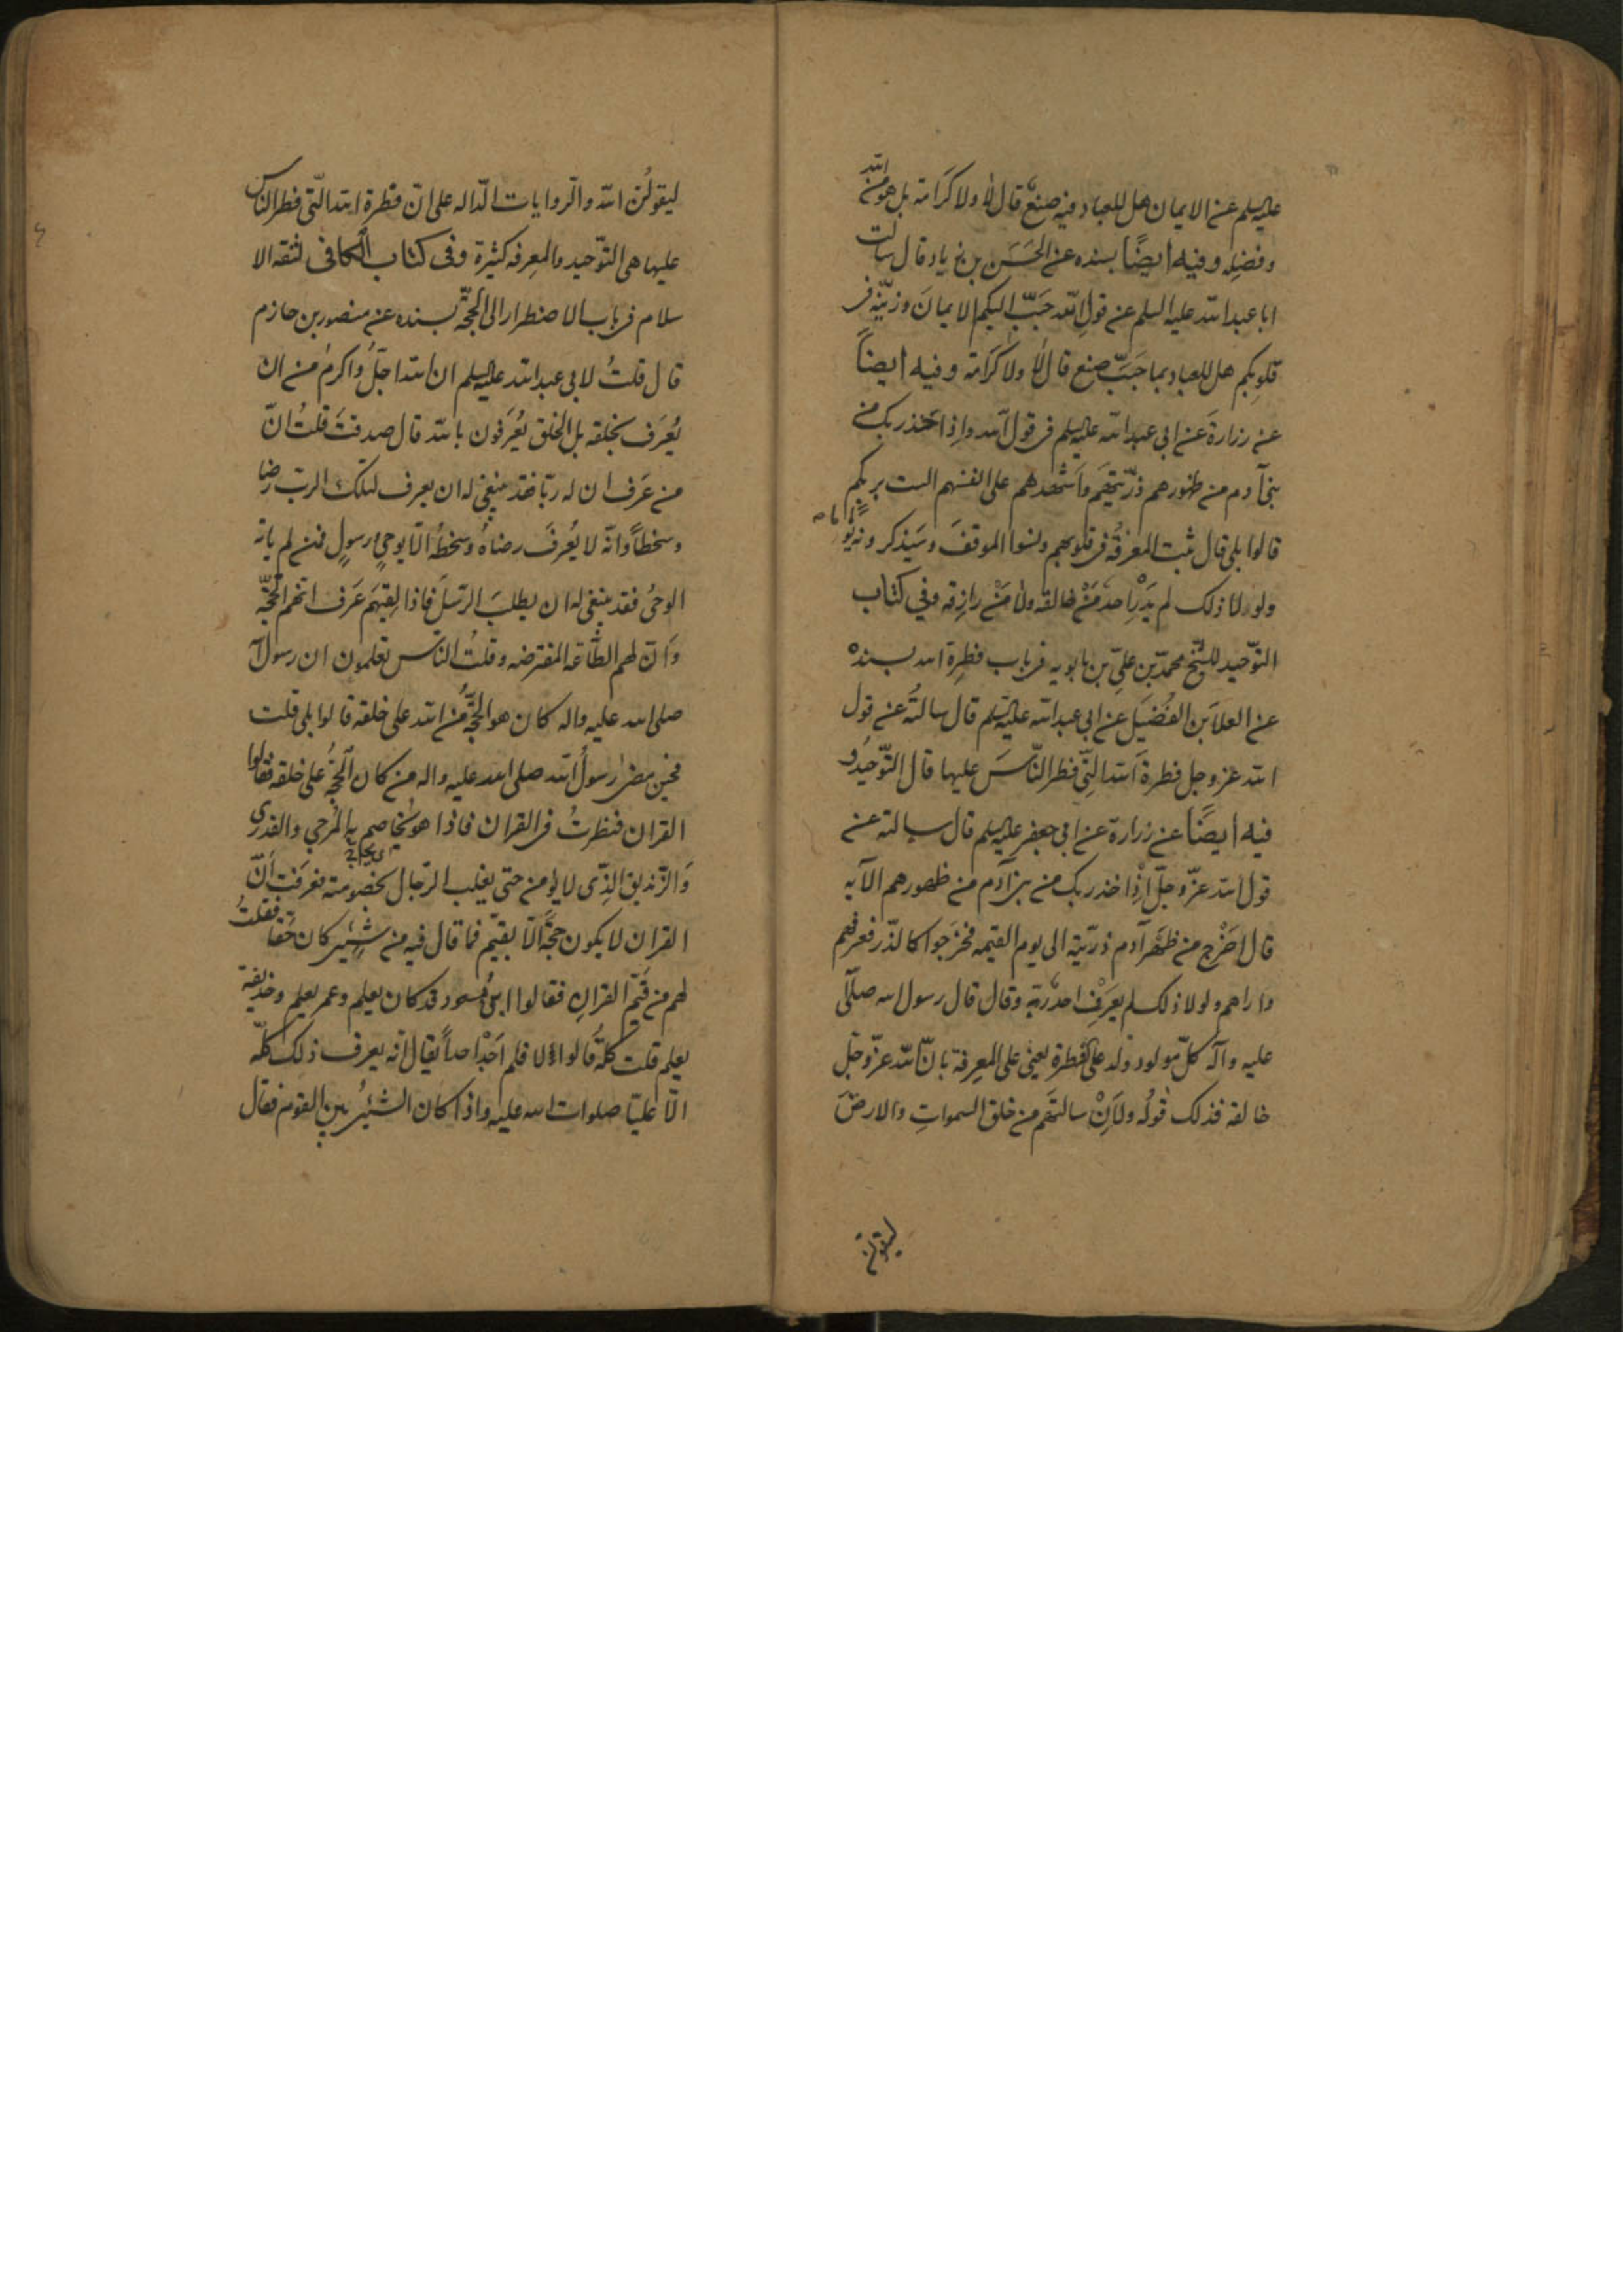 عليه السلم عن الايمان هل للعباد فيه صنع قال لا ولا كرامة بل هو من الله
وفضله وفيه ايضًا بسنده عن الحسن بن زياد قال سالت
ابا عبد الله عليه السلم عن قول الله حَبّب اليكم الايمان وزيّنه فى
قلوبكم هل للعباد بما حَبّب صنع قال لا ولا كرامة وفيه ايضاً
عن زرارة عن ابى عبد الله عليه السلم فى قول الله واذ اخذ ربك من
بنى آدم من ظهورهم ذرّيتهم واَشهدهم على انفسهم الست بربكم
قالوا بلى قال ثبت المعرفةُ فى قلوبهم ونسوا الموقفَ وسَيذكرونه يومًا ما
ولولا ذلك لم يَدْرِ احد مَنْ خالقه ولا مَنْ رازقه وفي كتاب
التوّحيد للشيخ محمّد بن علىّ بن بابويه فى باب فطرة الله بسنده
عن العلاَ بن الفُضَيل عن ابى عبد الله عليه السلم قال سالتُه عن قول
الله عز وجل فطرةَ الله الّتى فطر النّاسَ عليها قال التّوحيدُ و
فيه ايضًا عن زرارة عن ابى جعفر عليه السلم قال سالته عن
قول الله عزّ وجلّ واِذْ اخذ ربك من بنى آدم من ظهورهم الآيه
قال اخرج من ظَهر آدم ذريّته الى يوم القيمه فخرَجوا كالذّر فعرفهم
واراهم ولولا ذلك لم يعرَف احدٌ ربّه وقال قال رسول الله صلّى
عليه وآله كلّ مولود ولد على الفطرة يعنى على المعرفة بانّ الله عزّ وجلّ
خالقه فذلك قوله ولَاِنْ سالتهَم من خلق السموات والارضَ
ليقولن
ليقولُنّ الله والّروايات الّداله على انّ فطرة الله الّتى فطر النّاس
عليها هى التوّحيد والمعرفه كثيرة وفى كتاب الكافى لثقه الا
سلام فى باب الاضطرار الى الحجّه بسنده عن منصور بن حازم
قال قلتُ لابى عبد الله عليه السلم ان الله اجَلّ واكرمُ من ان
يُعرَف بخلقه بل الخلق يُعرَفون بالله قال صدقتَ قلتُ انّ
من عَرَف ان له ربّا فقد ينبغى له ان يعرف لذلك الرب رضا
وسخطاً وانّه لا يُعرفَ رضاهُ وسخطُه الّا بوحىٍ او رسولٍ فمن لم ياته
الوحىُ فقد ينبغى له ان يطلبَ الرّسلَ فاذا لقيَهم عَرَف انّهم الحجّه
وَانّ لهم الطّاعة المفترضه وقلتُ للنّاس تعلمون ان رسول الله
صلى الله عليه واله كان هو الحجّةُ من الله على خلقه قالوا بلى قلت
فحين مضى رسولُ الله صلى الله عليه واله من كان الحجّةُ على خلقه فقالوا
القران فنظرتُ فى القران فاذا هو يُخاصم به المُرجى والقدرى
وَالزّنديق الّذى لا يؤمن حتى يغلب الرّجال بخصومته فعرَفتُ اَنّ
القران لا يكون حجّةً الّا بقيّم فما قال فيه من شِئىٍ كان حقّاً فقلتُ
لهم من قَيّم القران فقالوا ابن مسعود قد كان يعلم وعمر يعلم وحذيفة
يعلم قلت كلّه قالوا لا فلم اَجدْ احداً يقال انّه يعرف ذلك كلّه
الّا عليّا صلوات الله عليه واذا كان الشئىُ بين القوم فقال